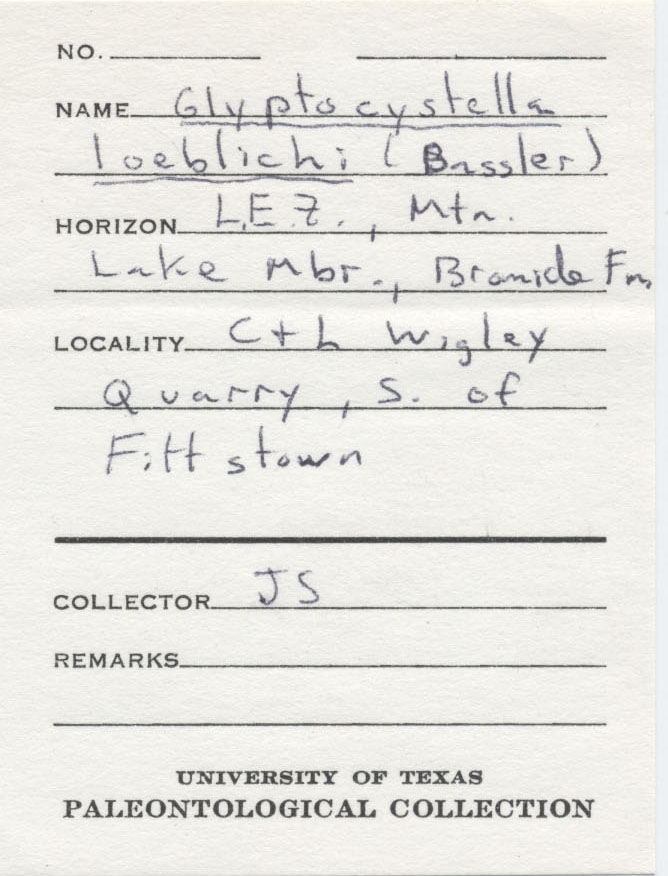 NO.
NAME Glyptocystella
loeblichi (Bassler)
HORIZON L.E.Z., Mtn.
Lake Mbr., Bromide Fm,
LOCALITY C + L Wigley
Quarry, S. of
Fittstown
COLLECTOR JS
REMARKS
UNIVERSITY OF TEXAS
PALEONTOLOGICAL COLLECTION